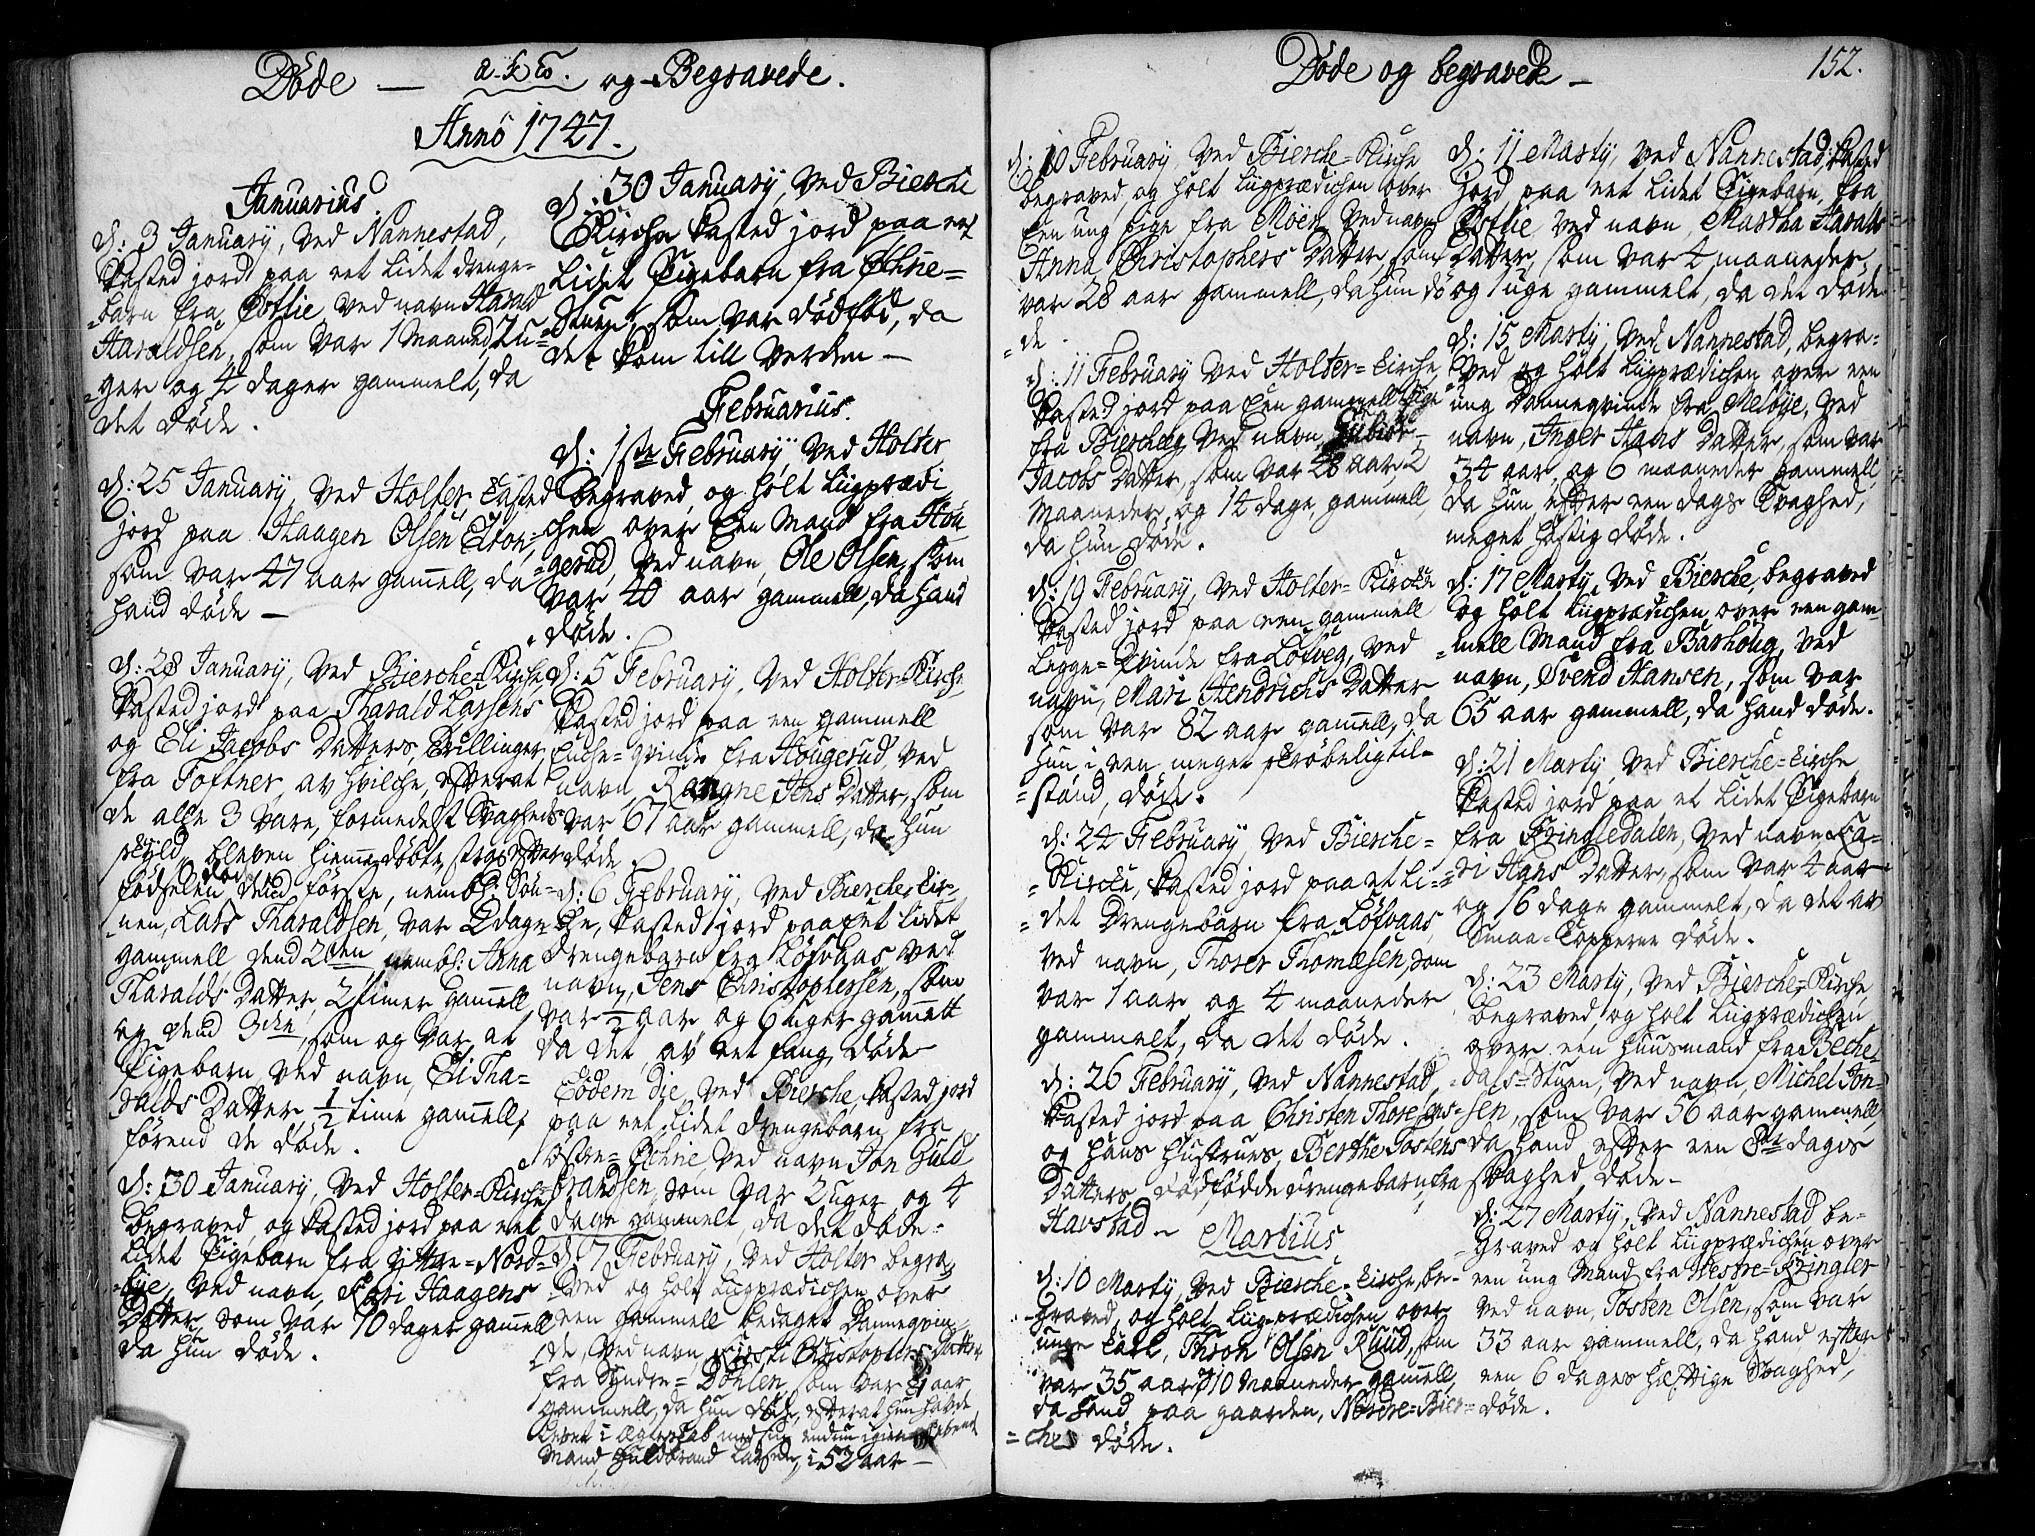 Döde — og Begravede.
Annô 1747.
Januarius
d: 3 January, ved Nannestad,
kasted jord paa eet lidet drenge-
-barn fra ved navn Harald
Haraldsen, som var 1 maaned, 2 u-
-ger og 4 dager gammelt, da
det döde.
d: 25 January, ved Holter, kasted
jord paa Haagen Olsen
som var 47 aar gam̄ell, da
hand döde —
d: 28 January, ved Bierche-Kirche,
kasted jord paa Tharald Larsens
og Eli Jacobs Datters, Trillinger,
fra Toftner, av hvilche, efterat
de alle 3 vare, formedelst Svagheds
skyld, bleven hieme döbte, strax efter
födselen döde dend förste, nembl: Sön-
nen, Lars Tharaldsen, var 2 dage
gammell dend 2den nembl: Anna
Tharalds Datter, 2 timer gam̄ell,
og dend 3die, som og var et
Pigebarn, ved navn, Eli Tha-
ralds Datter, ½ time gam̄ell,
förend de döde.
d: 30 January, ved Holter-Kirche
begraved, og kasted jord paa eet
lidet Pigebarn fra Yttre-Nord-
-bye, ved navn, Kari Haagens
Datter, som var 10 dager gam̄ell
da hun döde.
d: 30 January, ved Bierche
Kirche kasted jord paa eet
lidet Pigebarn fra
Stuen, som var dödföd, da
det kom till verden —
Februarius.
d: 1ste February, ved Holter
begraved, og holt Liigprædi-
chen over Een Mand fra Hou-
-gerud, ved navn, Ole Olsen, som
var 40 aar gammell, da hand
döde.
d: 5 February, ved Holter-Kirche,
kasted jord paa een gammell
Enche-qvinde fra Hougerud, ved
navn, Rangne Jens Datter, som
var 67 aar gammell, da hun
döde.
d: 6 February, ved Bierche, Kir-
che, kasted jord paa eet lidet
drengebarn fra Löfvaas, ved
navn, Jens Christophersen, som
var ½ aar og 6 uger gam̄elt
da det av eet fang döde
Eodem die, ved Bierche, kasted jord
paa eet lidet drengebarn fra
östre- ved navn Jon Guld-
brandsen, som var 2 uger og 4
dage gammelt, da det döde.
d: 7 February, ved Holter begra-
-ved og holt Liigprædichen over
een gammell bedaget Danneqvin-
de, ved navn, Kirsti Christophers Datter
fra Syndre-Döhlen, som var aar
gammell, da hun döde, efterat hun havde
levet i Ægteskab med sin endnu igien levende
Mand, Guldbrand Larsen, i 52 aar —
Döde og begravede —
152.
d: 10 February, ved Bierche-Kirche
begraved, og holt Liigprædichen over
Een ung pige fra Moen, ved navn
Anna Christophers Datter, som
var 28 aar gammell, da hun dö
-de.
d: 11 February ved Holter-Kirche,
kasted jord paa Een gammell Pige
fra Bierche, ved navn
Jacobs Datter, som var 28 aar, 2
Maaneder, og 14 dage, gammell
da hun döde.
d: 19 February, ved Holter-Kirche
kasted jord paa een gammell
Legge-Qvinde fra Löfveg, ved
navn, Mari Hendrichs Datter
som var 82 aar gam̄ell, da
hun i een meget skröbelig til-
-stand, döde.
d: 24 February, ved Bierche-
-Kirche, kasted jord paa et li-
-det drengebarn fra Löfvaas,
ved navn, Thorer Thomesen, som
var 1 aar og 4 maaneder
gammelt, da det döde.
d: 26 February, ved Nannestad,
kasted jord paa Christen Thoresens
og hans Hustrues, Berthe Tostens
Datters, dödfödde drengebarn fra
Havstad —
Martius
d: 10 Marty, ved Bierche-Kirche, be-
-graved, og holt Liigprædichen over
unge karl, Thron Olsen Ruud, som
var 35 aar 10 Maaneder gam̄ell,
da hand paa gaarden, Nordre-Bier-
-che döde.
d: 11 Marty, ved Nannestad, kasted
jord paa eet lidet Pigebarn fra
ved navn, Martha Haralds
Datter, som var 4 maaneder
og 1 uge gammelt, da det döde
d: 15 Marty, ved Nannestad, begra-
-ved og holt Liigprædichen over een
ung Danneqvinde fra Melbye, ved
navn, Inger Hans Datter, som var
34 aar, og 6 maaneder gammell,
da hun, efter een dags Svaghed,
meget hastig döde.
d: 17 Marty, ved Bierche, begraved
og holt Liigprædichen over een gam-
-mell Mand fra Barhoug, ved
navn, Svend Hansen, som var
65 aar gammell, da hand döde.
d: 21 Marty, ved Bierche-Kirche
kasted jord paa et lidet Pigebarn
fra Kringledalen, ved navn Ka-
-ri Hans Datter, som var 4 aar
og 16 dage gammelt, da det av
Smaa-Kopperne döde.
d: 23 Marty, ved Bierche-Kirche,
begraved, og holt Liigprædichen
over een Huusmand fra Beche-
dals-Stuen, ved navn, Michel Jon-
-sen, som var 56 aar gammell,
da hand efter een 8te dages
Svaghed, döde —
d: 27 Marty, ved Nannestad be-
-graved og holt Liigprædichen over
een ung Mand fra Vestre-Kringler
ved navn, Tosten Olsen, som var
33 aar gammell, da hand efter
een 6 dages hæftige Svaghed,
döde.